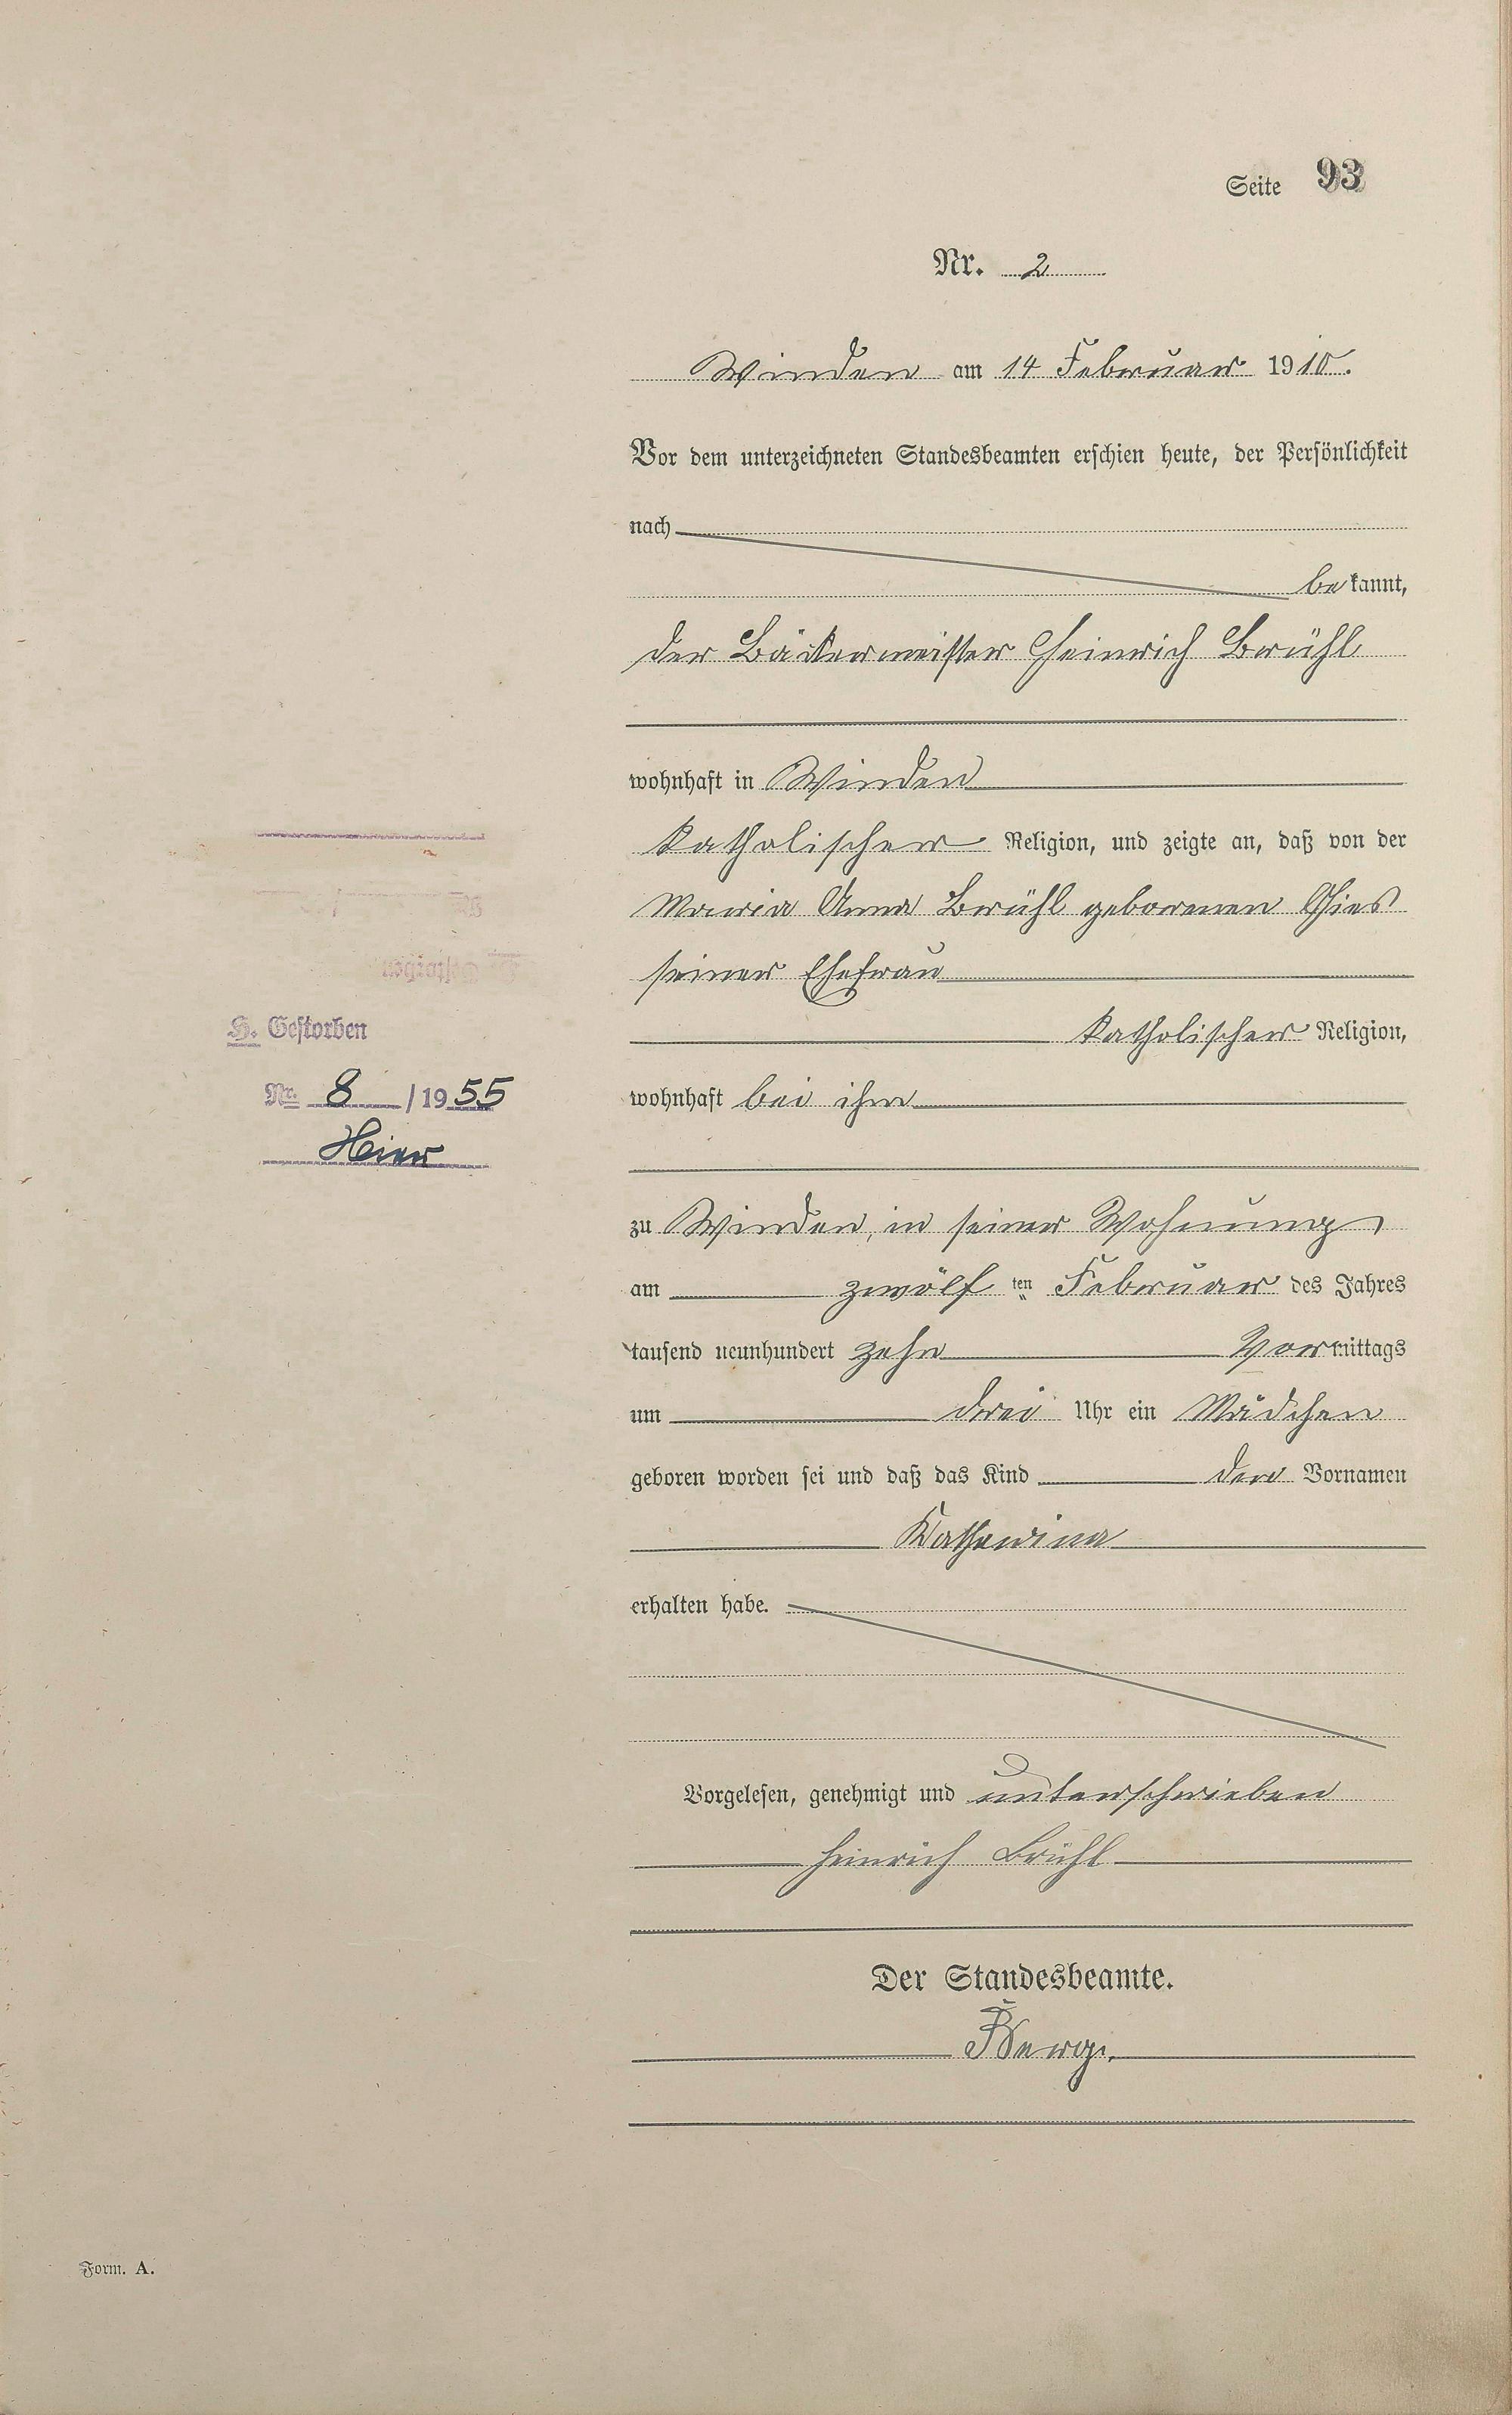 Seite 93
Nr. 2
Winden am 14 Februar 1910.
Vor dem unterzeichneten Standesbeamten erschien heute, der Persönlichkeit
nach
bekannt,
der Bäckermeister Heinrich Brühl
wohnhaft in Winden
katholischer Religion, und zeigte an, daß von der
Maria Anna Brühl geborenen Gies
seiner Ehefrau
katholischer Religion,
wohnhaft bei ihm
zu Winden, in seiner Wohnung
am zwölf ten Februar des Jahres
tausend neunhundert zehn Vormittags
um drei Uhr ein Mädchen
geboren worden sei und daß das Kind den Vornamen
Katharina
erhalten habe.
Vorgelesen, genehmigt und unterschrieben
Heinrich Brühl
Der Standesbeamte.
H. Gestorben
Nr. 8 /1955
Form. A.